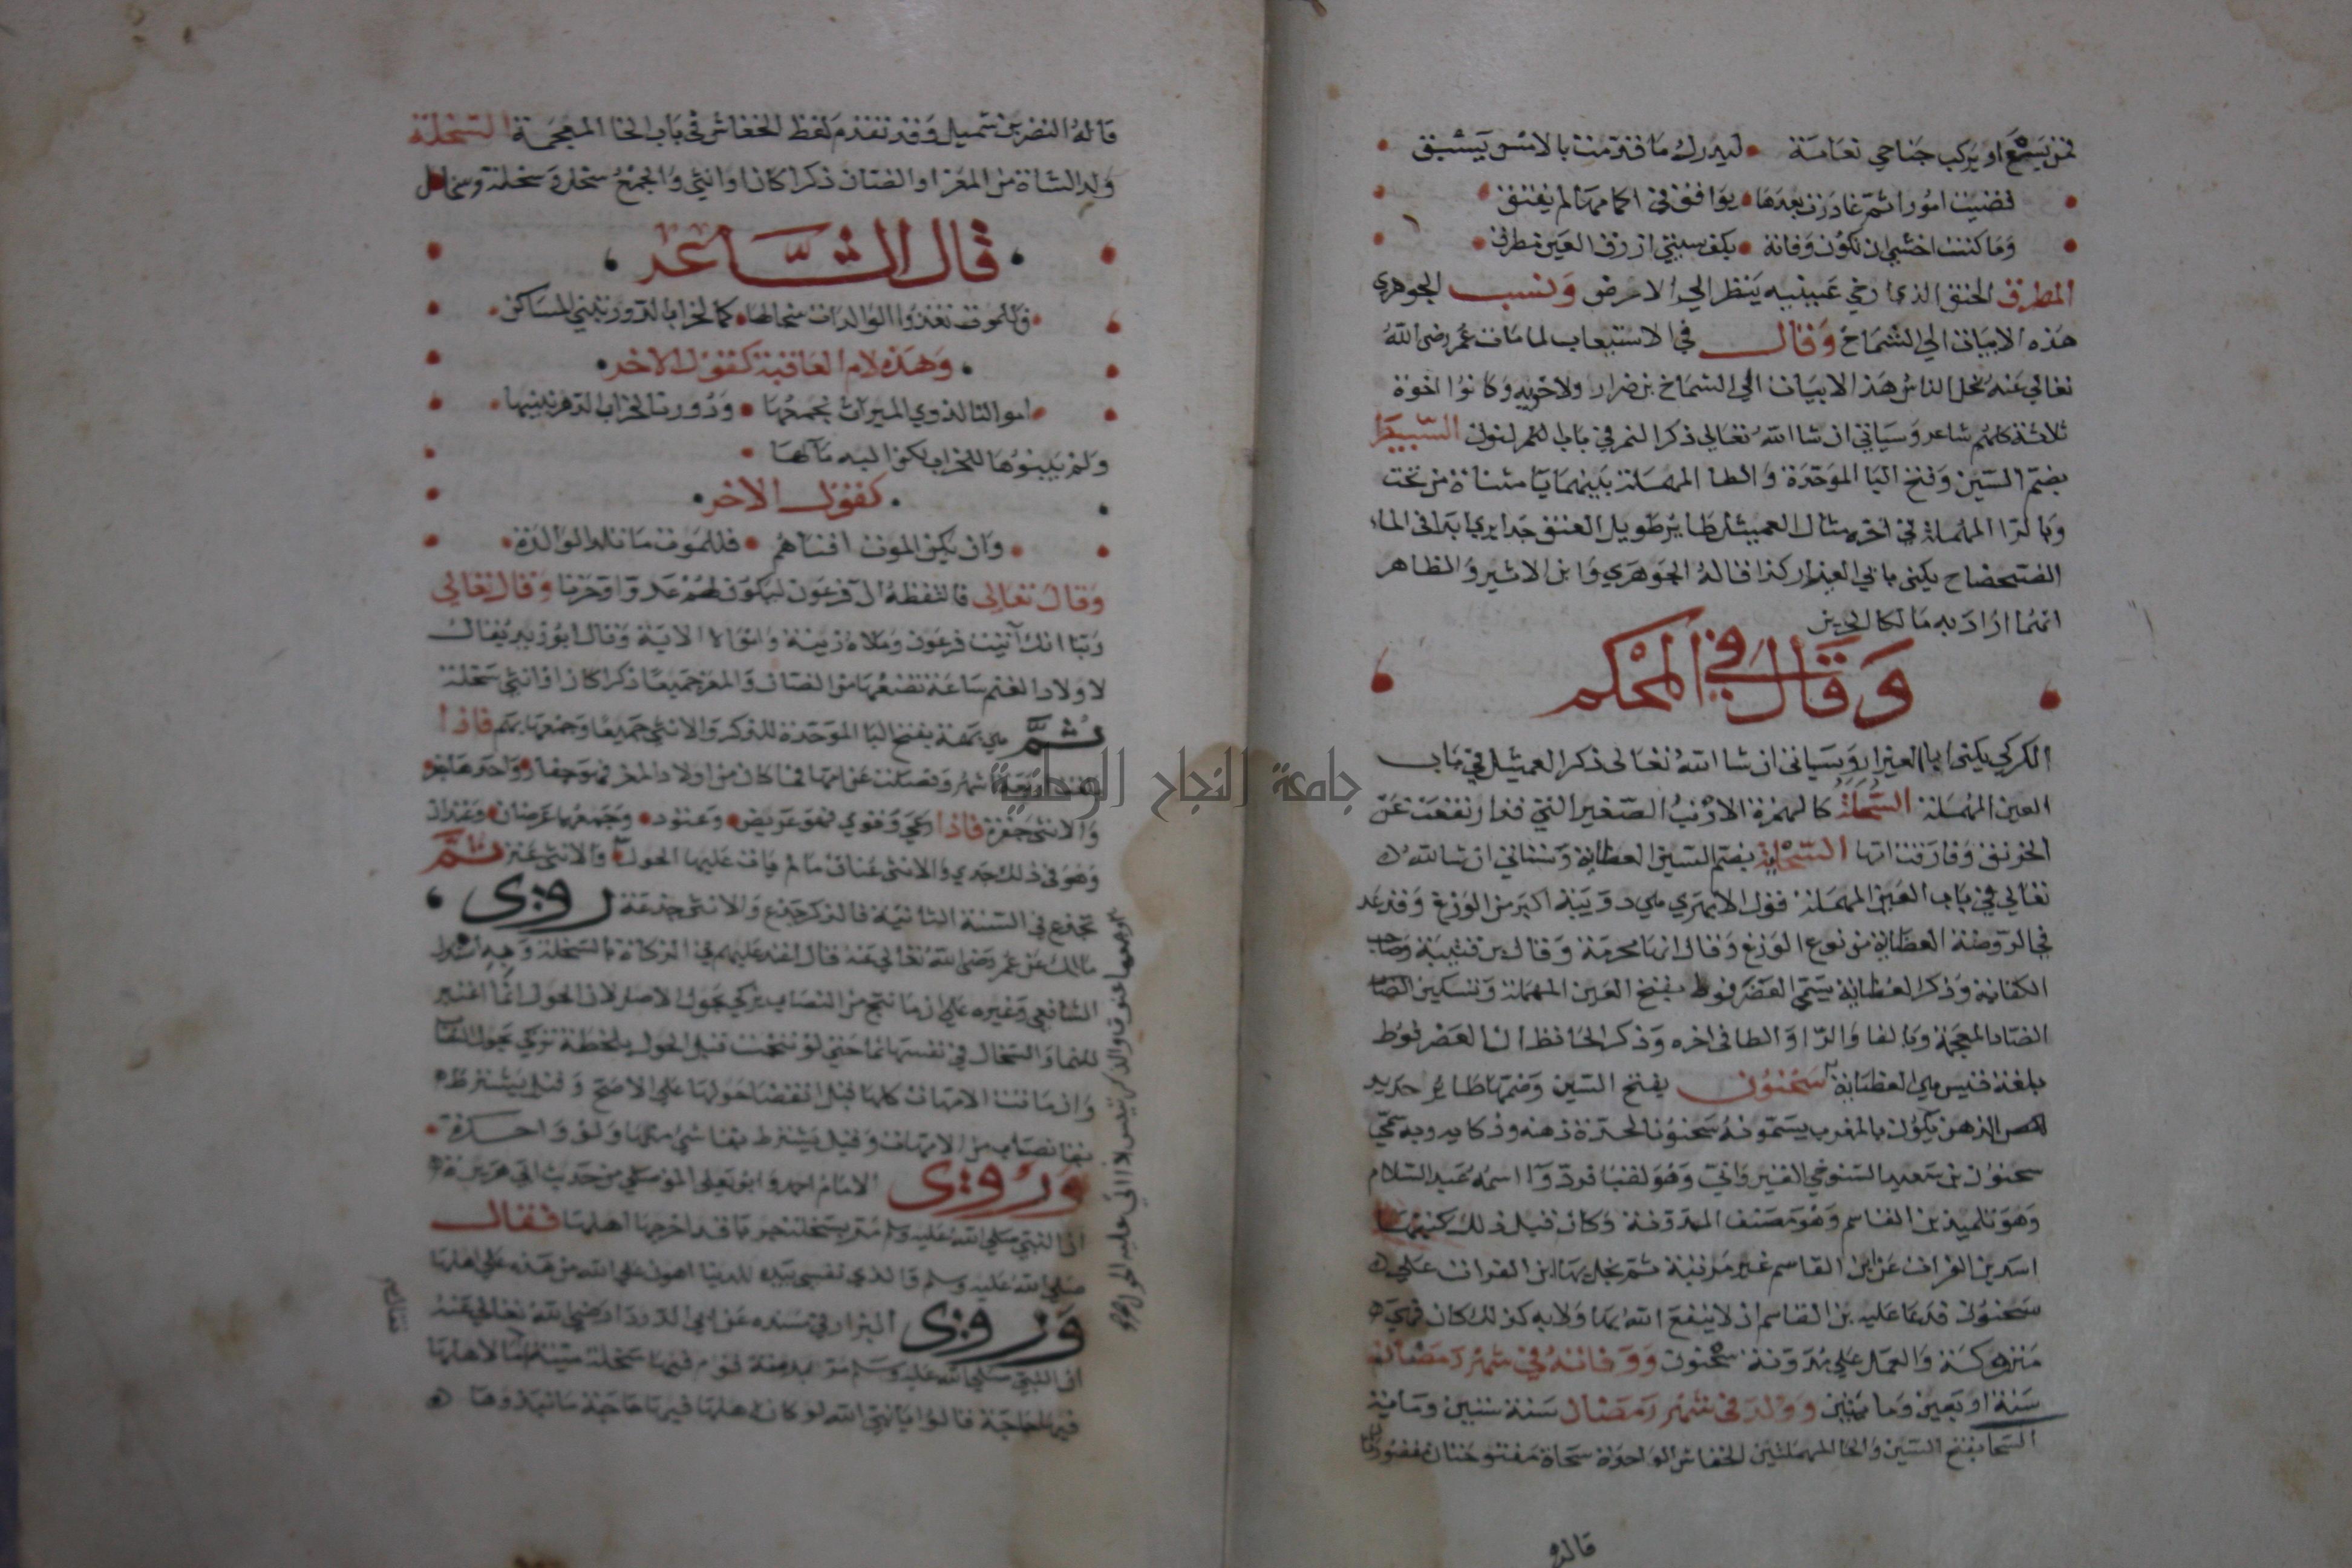 فمن يسع او يركب جناحي نعامة • ليدرك ما قدمت بالامس يسبق
قضيت امورا ثم غادرت بعدها • بوافق في اكمامها لم تفتق
وما كنت اخشي ان تكون وفاته • بكف سبنتي ازرق العين مطرق
المطرق الحنق الذي ارخي عينيه ينظر الي الارض ونسب الجوهري
هذه الابيات الي الشماخ وقال في الاستيعاب لما مات عمر رضي الله
تعالي عنه نحل الناس هذ الابيات الي الشماخ بن ضرار ولاخويه وكانوا اخوة
ثلاثة كلهم شاعر وسياتي ان شا الله تعالي ذكر النمر في باب النون السبيطر
بضم السين وفتح اليا الموحدة والطا المهملة بينهما يا مثناة من تحت
وبالرا المهملة في اخره مثال العميثل طاير طويل العنق جدا يري ابدا في الماء
الضحضاح يكني بابي العيزار كذا قاله الجوهري وابن الاثير والظاهر
انهما ارادا به مالكا الحزين
وقال في المحكم
الكركي يكني ابا العيزار وسياتي ان شا الله تعالي ذكر العميثل في باب
العين المهملة السحلة كالهمزة الارنب الصغير التي قد ارتفعت عن
الخرنق وفارقت امها السحلية بضم السين العظاية وستاتي ان شا الله
تعالي في باب العين المهملة قول الازهري هي دويبة اكبر من الوزغ وقد عد
في الروضة العظاية من نوع الوزغ وقال انها محرمة وقال بن قتيبة وصاحب
الكفاية وذكر العظاية يسمي العضرفوط بفتح العين المهملة وتسكين الضاد
الضاد المعجمة وبالفا والرا والطا في اخره وذكر الحافظ ان العضرفوط
بلغة قيس هي العظاية سحنون بفتح السين وضمها طاير حديد
الذهن يكون بالمغرب يسمونه سحنونا لحدة ذهنه وذكايه وبه سمي
سحنون بن سعيد التنوخي القيرواني وهو لقب فرد واسمه عبد السلام
وهو تلميذ بن القاسم وهو مصنف المدونة وكان قبل ذلك كتبها
اسد بن الفرات عن ابن القاسم غير مرتبة ثم بخل بها ابن الفرات علي
سحنون فدعا عليه بن القاسم ان لا ينفع الله بها ولا به كذلك كان فهي
متروكة والعمل علي مدونة سحنون ووفاته في شهر رمضان
سنة اربعين وماتين وولد في شهر رمضان سنة ستين وماية
السحا بفتح السين والحا المهملتين الخفاش الواحدة سحاة مفتوحتان مقصورتان
قاله
قاله النضر بن شميل وقد تقدم لفظ الخفاش في باب الخا المعجمة السخلة
ولد الشاة من المعز او الضان ذكرا كان او انثي والجمع سخل وسخلة وسخال
قال الشاعر
فللموت تغذوا الوالدات سخالها • كما لخراب الدور تبني المساكن
وهذه لام العاقبة كقول الاخر
اموالنا لذوي الميراث نجمعها • ودورنا لخراب الدهر نبنيها
ولم يبنوها للخراب لكن اليه مآلها
كقول الاخر
وان يكن الموت افناهم • فللموت ما تلد الوالدة
وقال تعالي فالتقطه آل فرعون ليكون لهم عدوا وحزنا وقال تعالي
ربنا انك آتيت فرعون وملاه زينة واموالا الاية وقال ابو زيد يقال
لاولاد الغنم ساعة تضعها من الضان والمعز جميعا ذكرا كان او انثي سخلة
ثم هي بهمة بفتح البا الموحدة للذكر والانثي جميعا وجمعها بهم فاذا
بلغت اربعة اشهر وفصلت عن امها فما كان من اولاد المعز فهو جفار واحدها جفر
والانثي جفرة فاذا رعي وقوي فهو عريض وعتود وجمعهما عرضان وعتدان
وهو في ذلك جدي والانثي عناق ما لم يات عليها الحول والانثي عنز ثم
تجذع في السنة الثانية فالذكر جذع والانثي جذعة روي
مالك عن عمر رضي الله تعالي عنه قال اعتد عليهم في الزكاة بالسخلة وبه استدل
الشافعي وغيره علي ان ما نتج من النصاب يزكي بحول الاصل لان الحول انما اعتبر
للنما والسخال في نفسها نما حتي لو نتجت قبل الحول بلحظة تزكي بحول النصاب
وان ماتت الامهات كلها قبل انقضا حولها علي الاصح وقيل يشترط
بقا نصاب من الامهات وقيل يشترط بقا شئ منها ولو واحدة
وروي الامام احمد وابو يعلي الموصلي من حديث ابي هريرة
ان النبي صلي الله عليه وسلم مر بسخلة جربا قد اخرجها اهلها فقال
صلي الله عليه وسلم والذي نفسي بيده للدنيا اهون علي الله من هذه علي اهلها
وروي البزار في مسنده عن ابي الدرداء رضي الله تعالي عنه
ان النبي صلي الله عليه وسلم مر بدمنة قوم فيها سخلة ميتة فقال ما لاهلها
فيها حاجة قالوا يا نبي الله لو كان لاهلها فيها حاجة ما نبذوها
جامعة النجاح الوطنية